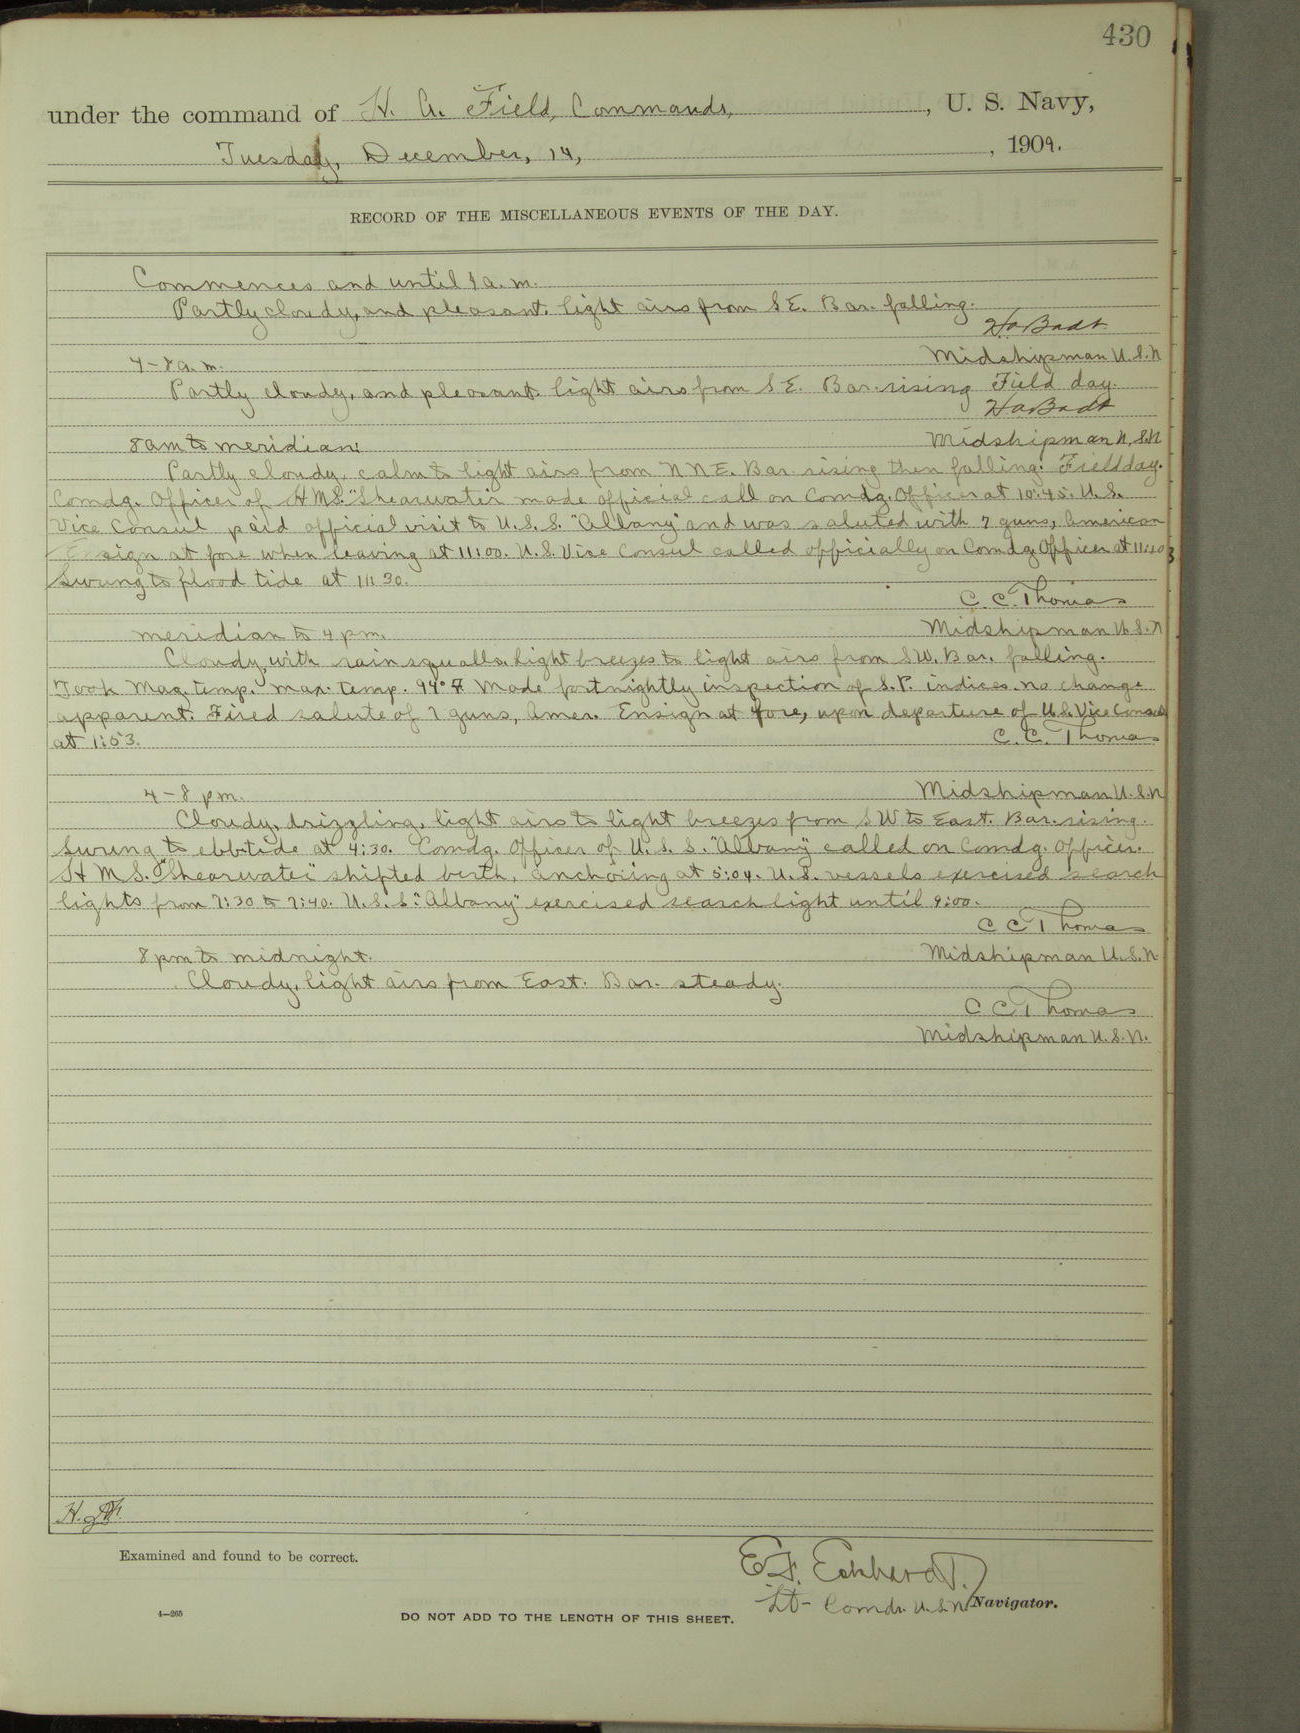 430
under the command of H. A. Field, Commander, , U. S. Navy,
Tuesday, December, 14, , 1909.
RECORD OF THE MISCELLANEOUS EVENTS OF THE DAY.
Commences and until 4 a. m.
Partly cloudy, and pleasant. light airs from S E. Bar. falling.
Midshipman U.S.N
4-8 a. m.
Partly cloudy, and pleasant. light airs from S E. Bar. rising Field day.
8 am to meridian: Midshipman U.S.N
Partly cloudy, calm to light airs from N N E. Bar. rising then falling. Field day.
Comdg. Officer of H M S. "Shearwater made official call on Comdg. Officer at 10:45. U. S.
Vice Consul paid official visit to U. S. S. "Albany" and was saluted with 7 guns, American
Ensign at fore when leaving at 11:00. U. S. Vice Consul called officially on Comdg. Officer at 11:10
Swung to flood tide at 11:30.
C. C. Thomas
meridian to 4 pm. Midshipman U.S.N
Cloudy, with rain squalls. light breezes to light airs from SW. Bar. falling.
Took Mag. temp. max. temp. 94° F Made fortnightly inspection of S. P. indices. no change
apparent. Fired salute of 7 guns, Amer. Ensign at fore, upon departure of U.S. Vice Consul
at 1:53. C. C. Thomas
4-8 pm. Midshipman U.S.N
Cloudy, drizzling, light airs to light breezes from SW to East. Bar. rising.
Swung to ebb tide at 4:30. Comdg. Officer of U. S. S. "Albany" called on Comdg. Officer.
H M S. "Shearwater" shifted berth, anchoring at 5:04. U. S. vessels exercised search
lights from 7:30 to 7:40. U. S. S. "Albany" exercised searchlight until 9:00.
C C Thomas
8 pm to midnight. Midshipman U.S.N.
Cloudy, light airs from East. Bar. steady.
C C Thomas
Midshipman U.S.N.
Examined and found to be correct.
E. F. Eckhardt.
Lt-Comdr. U.S.N. Navigator.
4—265
DO NOT ADD TO THE LENGTH OF THIS SHEET.